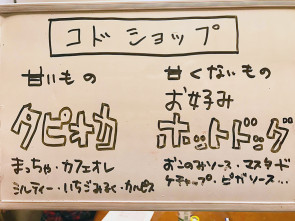 コドショップ
甘いもの
タピオカ
まっちゃ・カフェオレ
ミルティー・いちごみるく・カルピス
甘くないもの
お好み
ホットドッグ
おこのみソース・マスタード
ケチャップ・ピザソース…